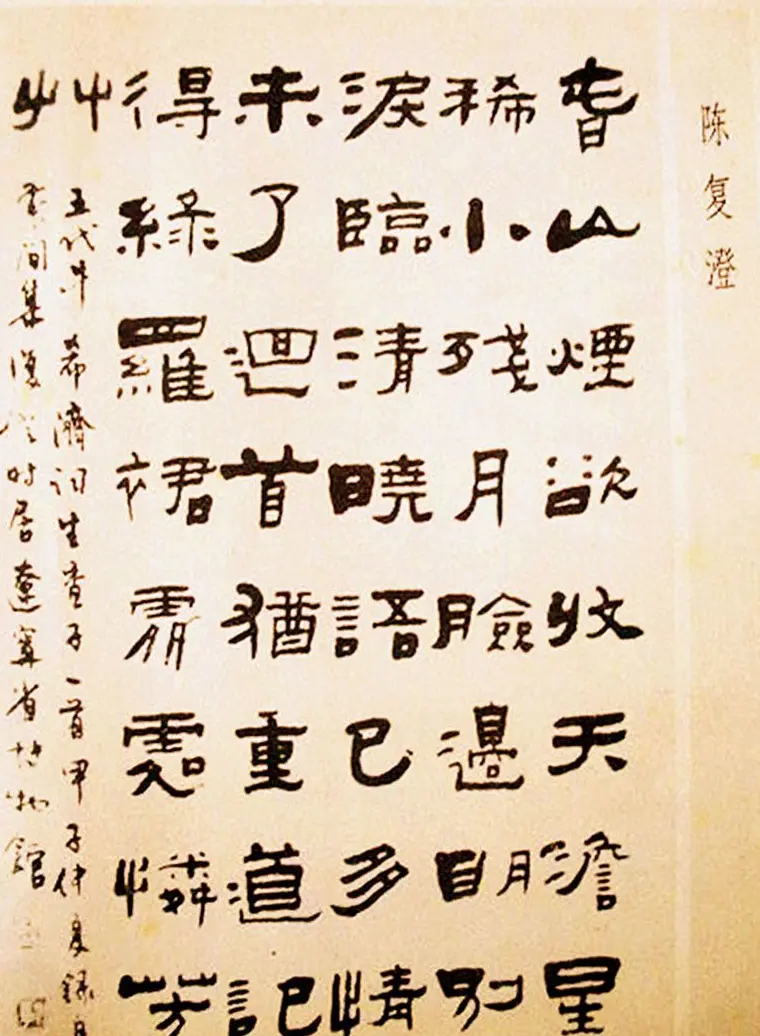 陈复澄
春山煙欲收天澹星
稀小殘月臉邊明別
淚臨清曉語已多情
未了迴首猶重道記
得綠羅裙處處憐芳
艸
五代牛希濟詞生查子一首甲子仲夏錄自
花間集復澄时居遼寧省博物館